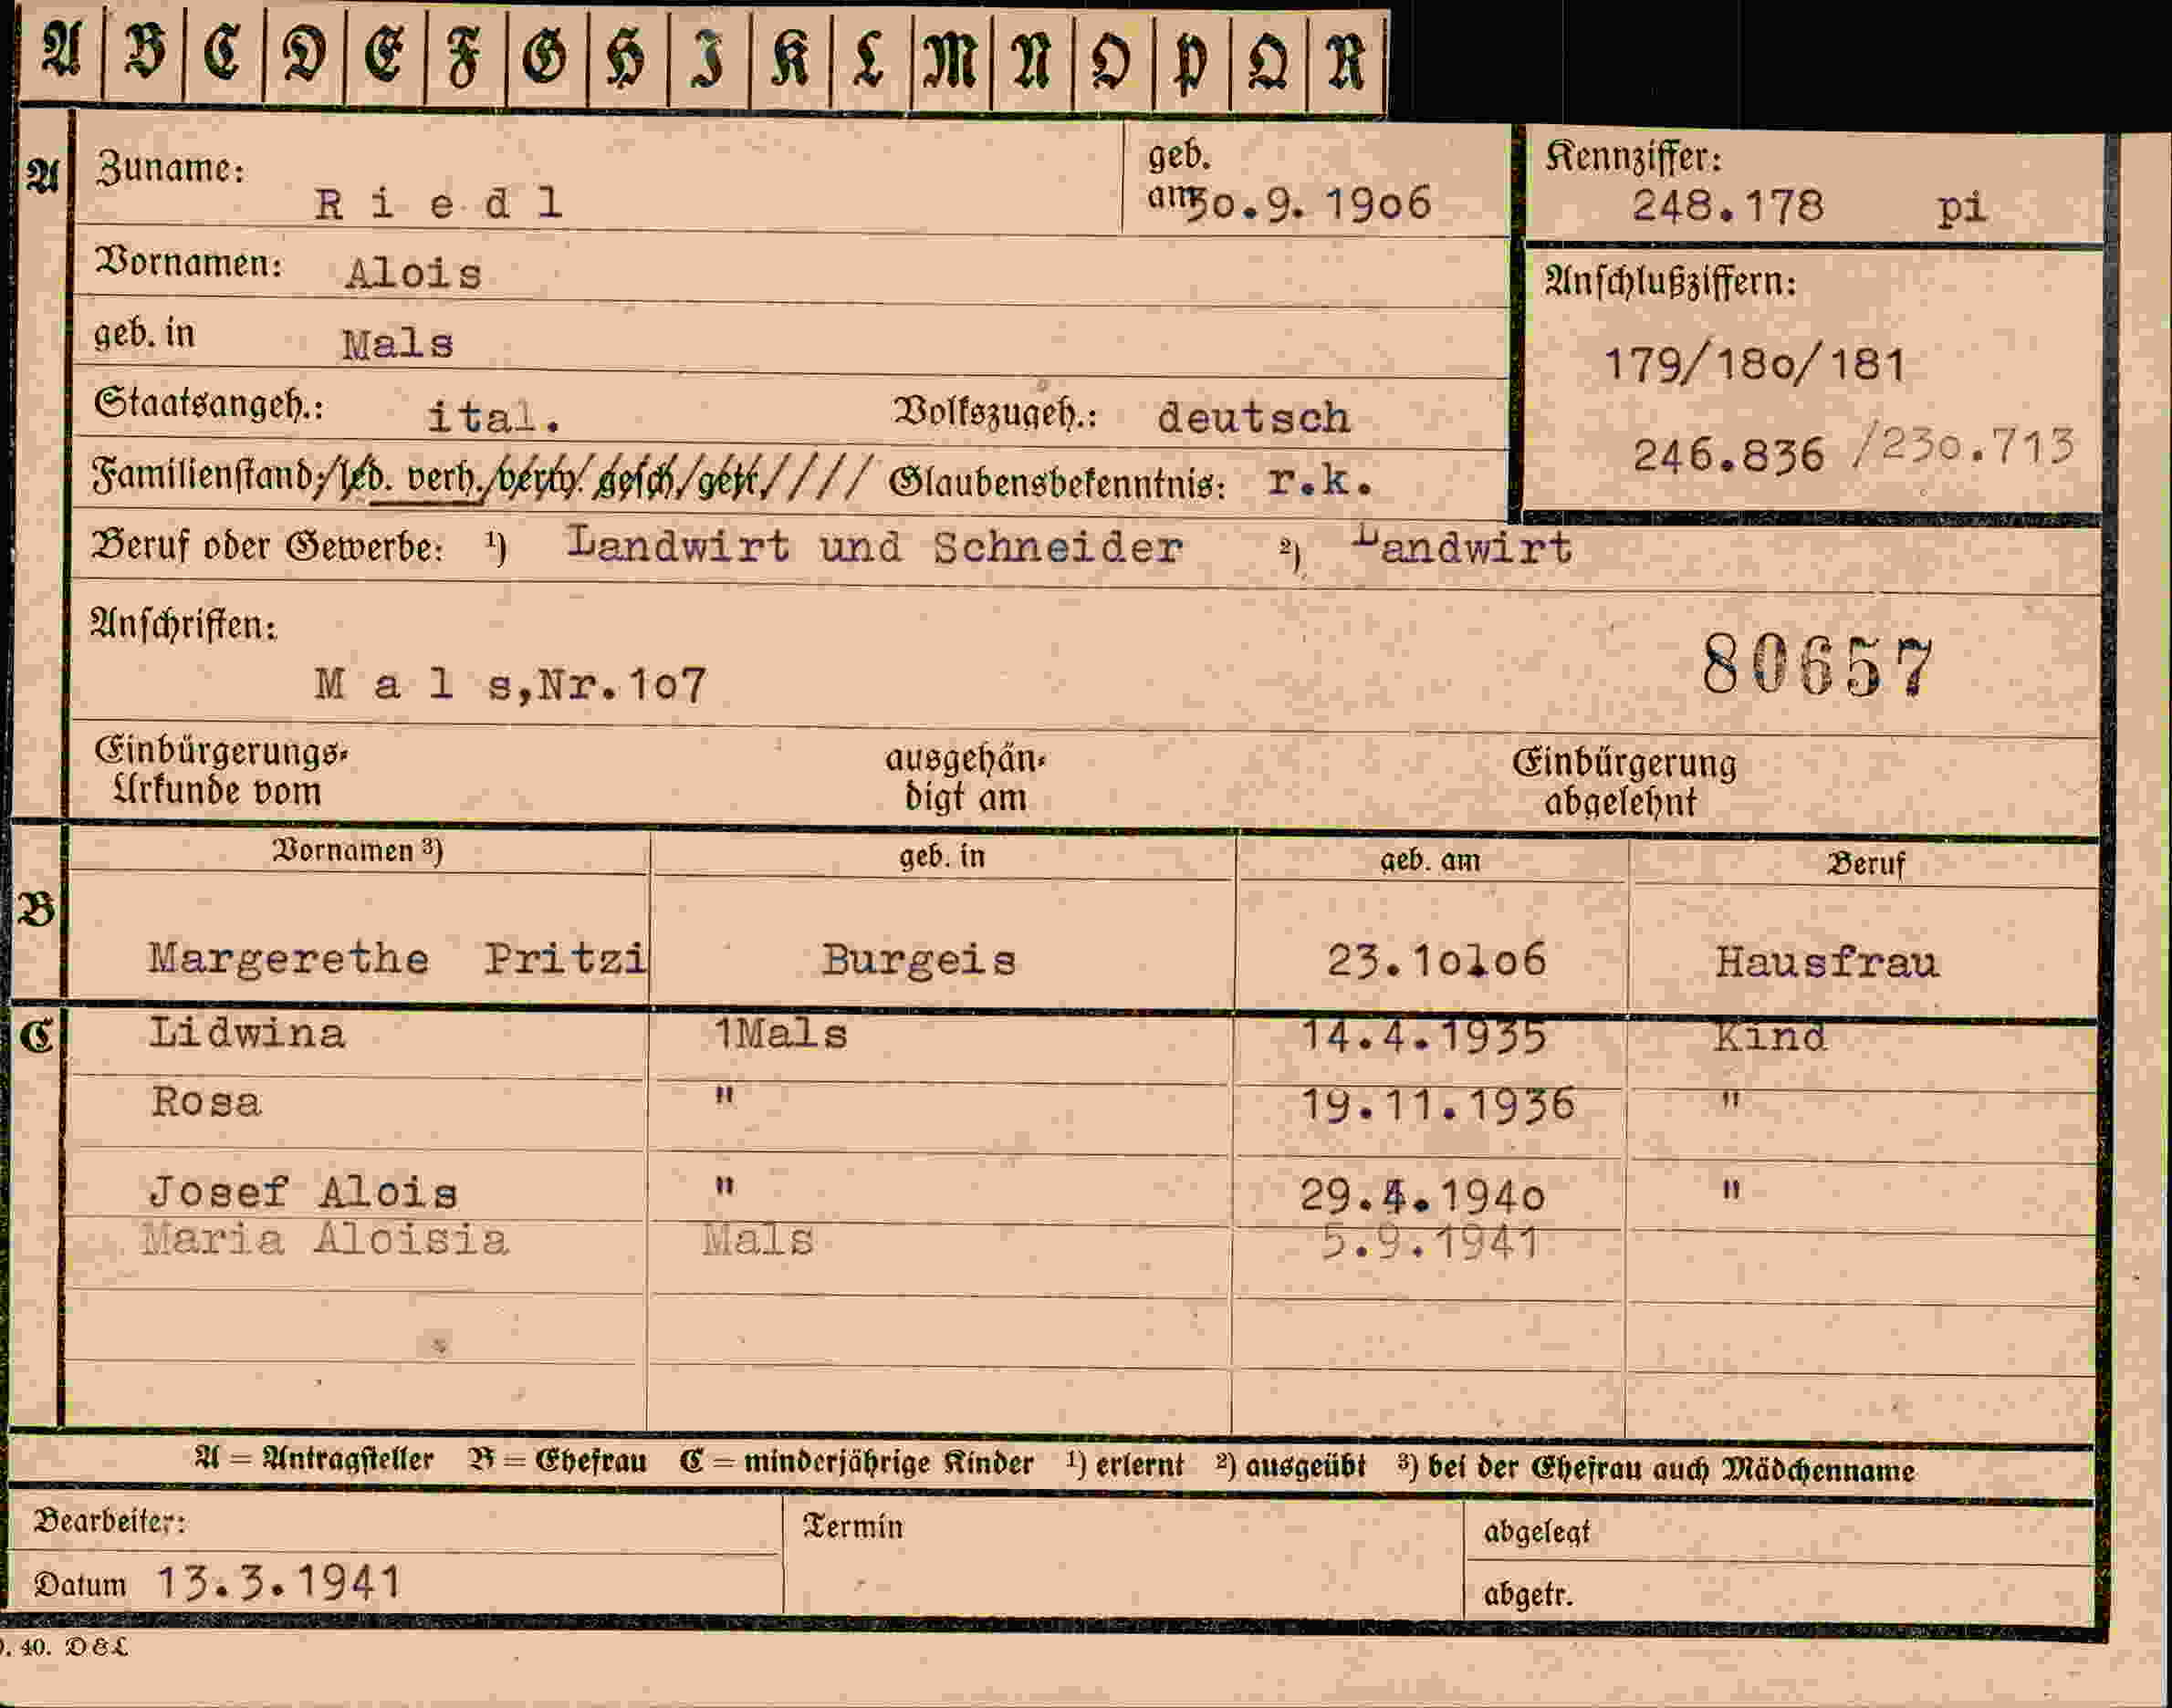 A B C D E F G H I K L M N O P Q R
A Zuname: Riedl geb. am 30.9.1906 Kennziffer: 248.178 pi
Vornamen: Alois Anschlußziffern:
geb. in Mals 179/180/181
Staatsangeh.: ital. Volkszugeh.: deutsch 246.836 /230.713
Familienstand: led. verh. verw. gesch. getr. //// Glaubensbekenntnis: r.k.
Beruf oder Gewerbe: ¹) Landwirt und Schneider ²) Landwirt
Anschriften: 80657
Mals,Nr.107
Einbürgerungs- ausgehän- Einbürgerung
Urkunde vom digt am abgelehnt
Vornamen ³) geb. in geb. am Beruf
B Margerethe Pritzi Burgeis 23.10106 Hausfrau
C Lidwina 1Mals 14.4.1935 Kind
Rosa " 19.11.1936 "
Josef Alois " 29.4.1940 "
Maria Aloisia Mals 5.9.1941
A = Antragsteller B = Ehefrau C = minderjährige Kinder ¹) erlernt ²) ausgeübt ³) bei der Ehefrau auch Mädchenname
Bearbeiter: Termin abgelegt
Datum 13.3.1941 abgetr.
. 40. D&L